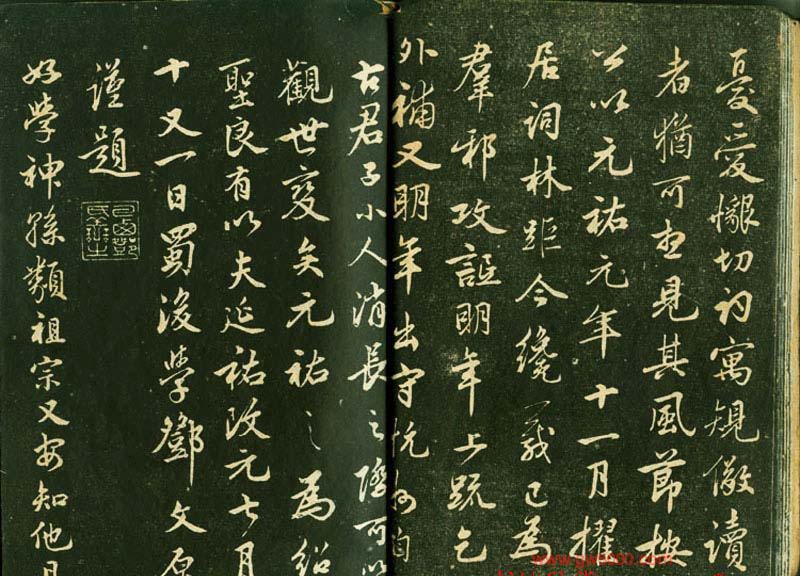 憂愛切詞寓規儆讀
者猶可想見其風節按
公以元祐元年十一月擢
居詞林距今纔一歲已為
羣邪攻詆明年上疏乞
外補又明年出守杭州自
古君子小人消長之際可以
觀世變矣元祐之為紹
聖良有以夫延祐改元七月
十又一日蜀後學鄧文原
謹題
好學神孫類祖宗又安知他日